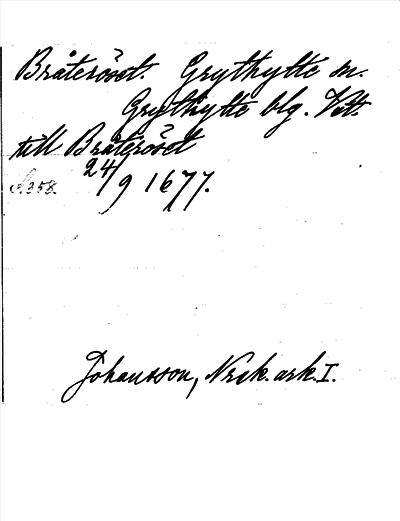 Bråteröset. Grythytte sn.
Grythytte blg. Vstt.
till Bråteröset
24/9 1677.
S. 358.
Johansson, Nrik. ark. I.